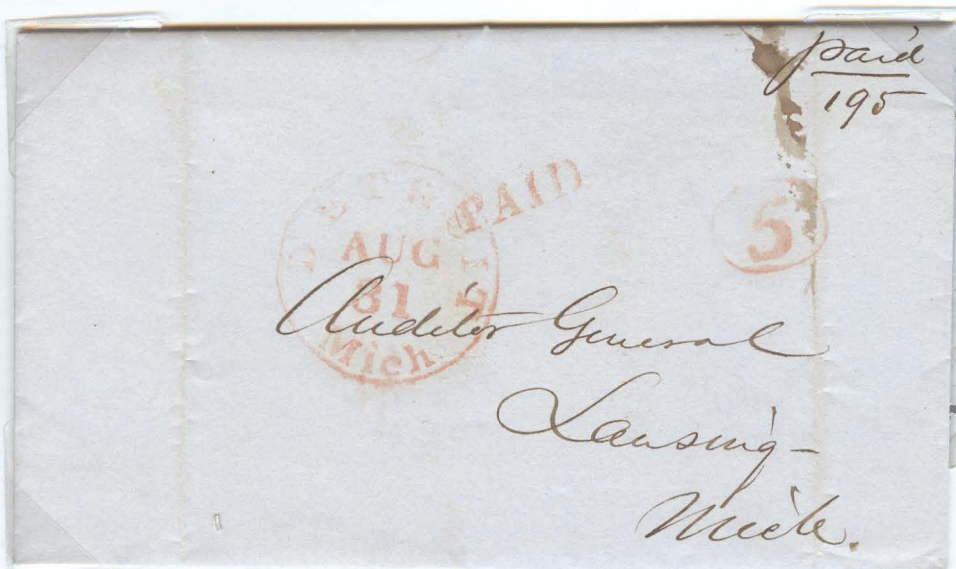 paid
195
DETROIT
PAID
AUG
31
Mich.
5
Auditor General
Lansing-
Mich.